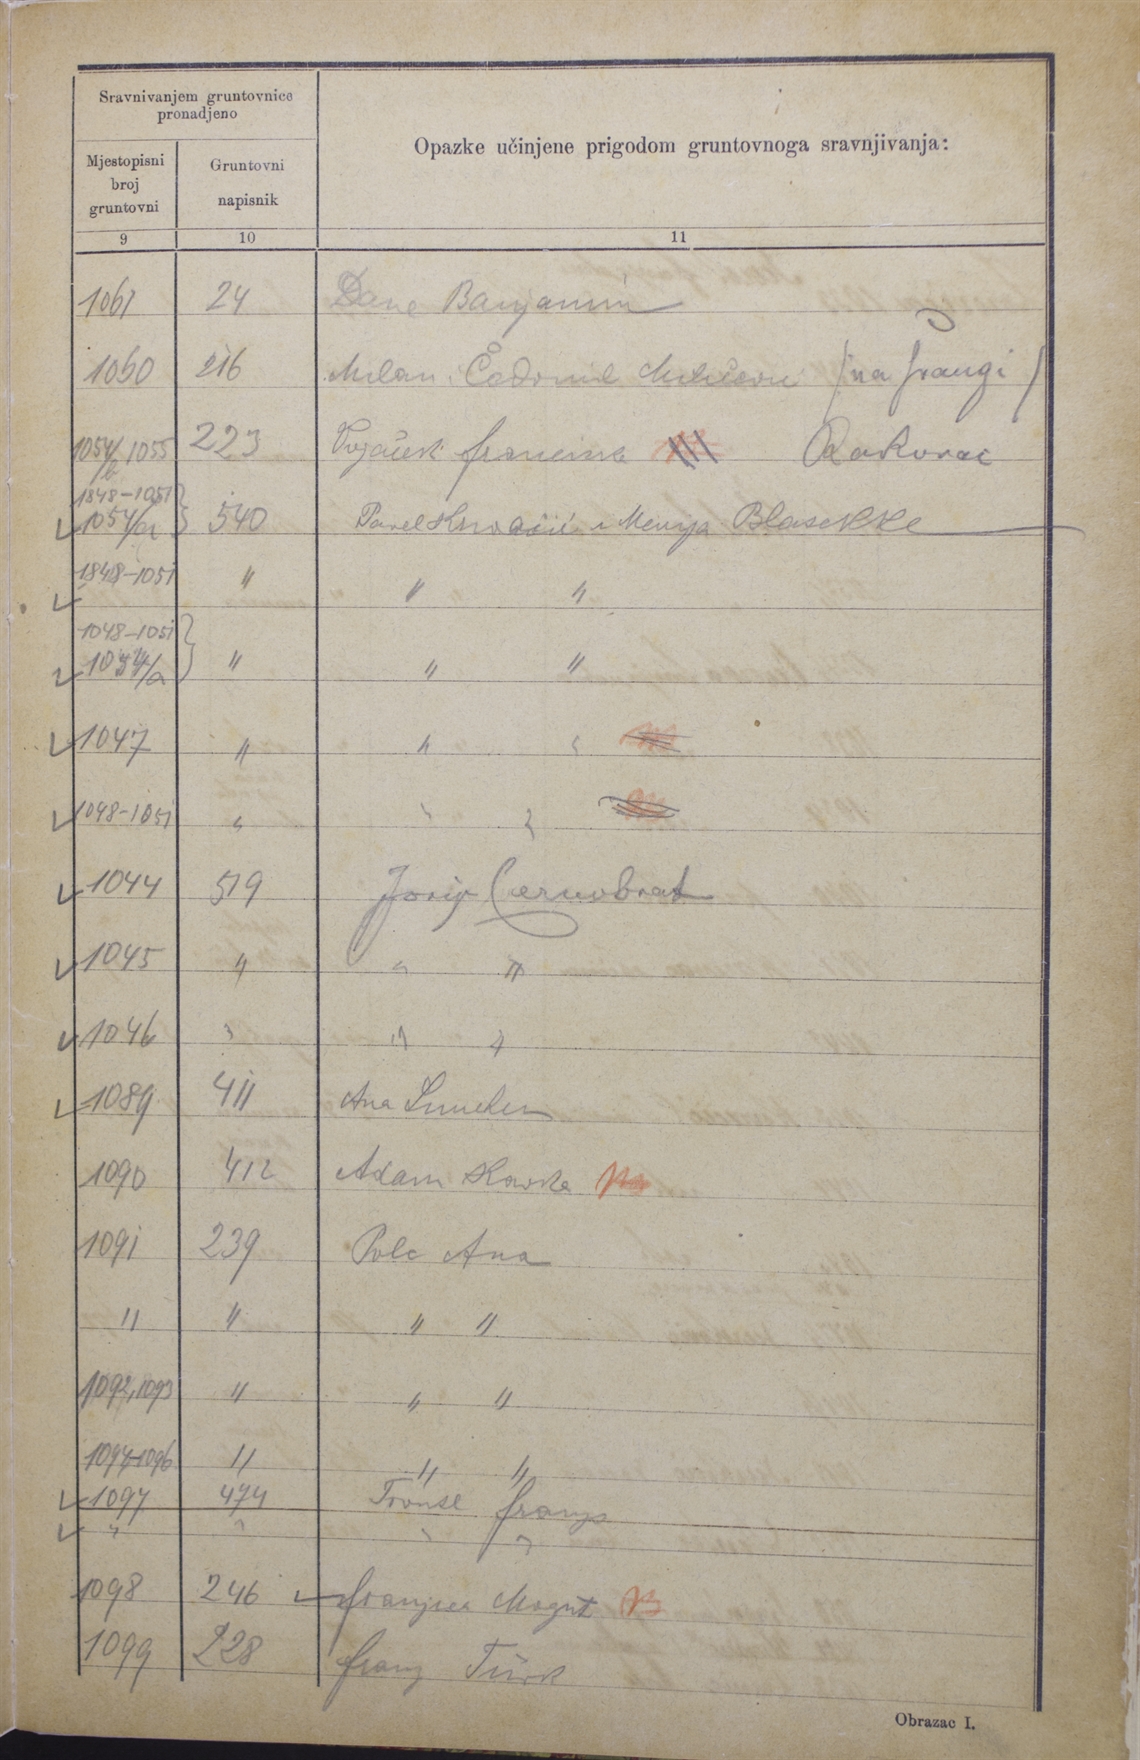 Sravnivanjem gruntovnice
pronadjeno
Opazke učinjene prigodom gruntovnoga sravnjivanja:
Mjestopisni
broj
gruntovni
Gruntovni
napisnik
9 10 11
1061 24 Dane Banjamin
1060 216 Milan i Čedomil (na Frangi)
1054/b 1055 223 Francina Rakovac
1848-1051
1054/a 540 Pavel i Marija Blasekke
1848-1051 " " "
1048-1051
1054/a " " "
1047 " " "
1048-1051 " " "
1044 519 Josip Czernobrat
1045 " " "
1046 " " "
1089 411 Ana
1090 412 Adam
1091 239 Polc Ana
" " " "
1092, 1093 " " "
1094-1096 " " "
1097 474 Franjo
" " " "
1098 246 Franjica Mogut
1099 228 Franj Türk
Obrazac I.